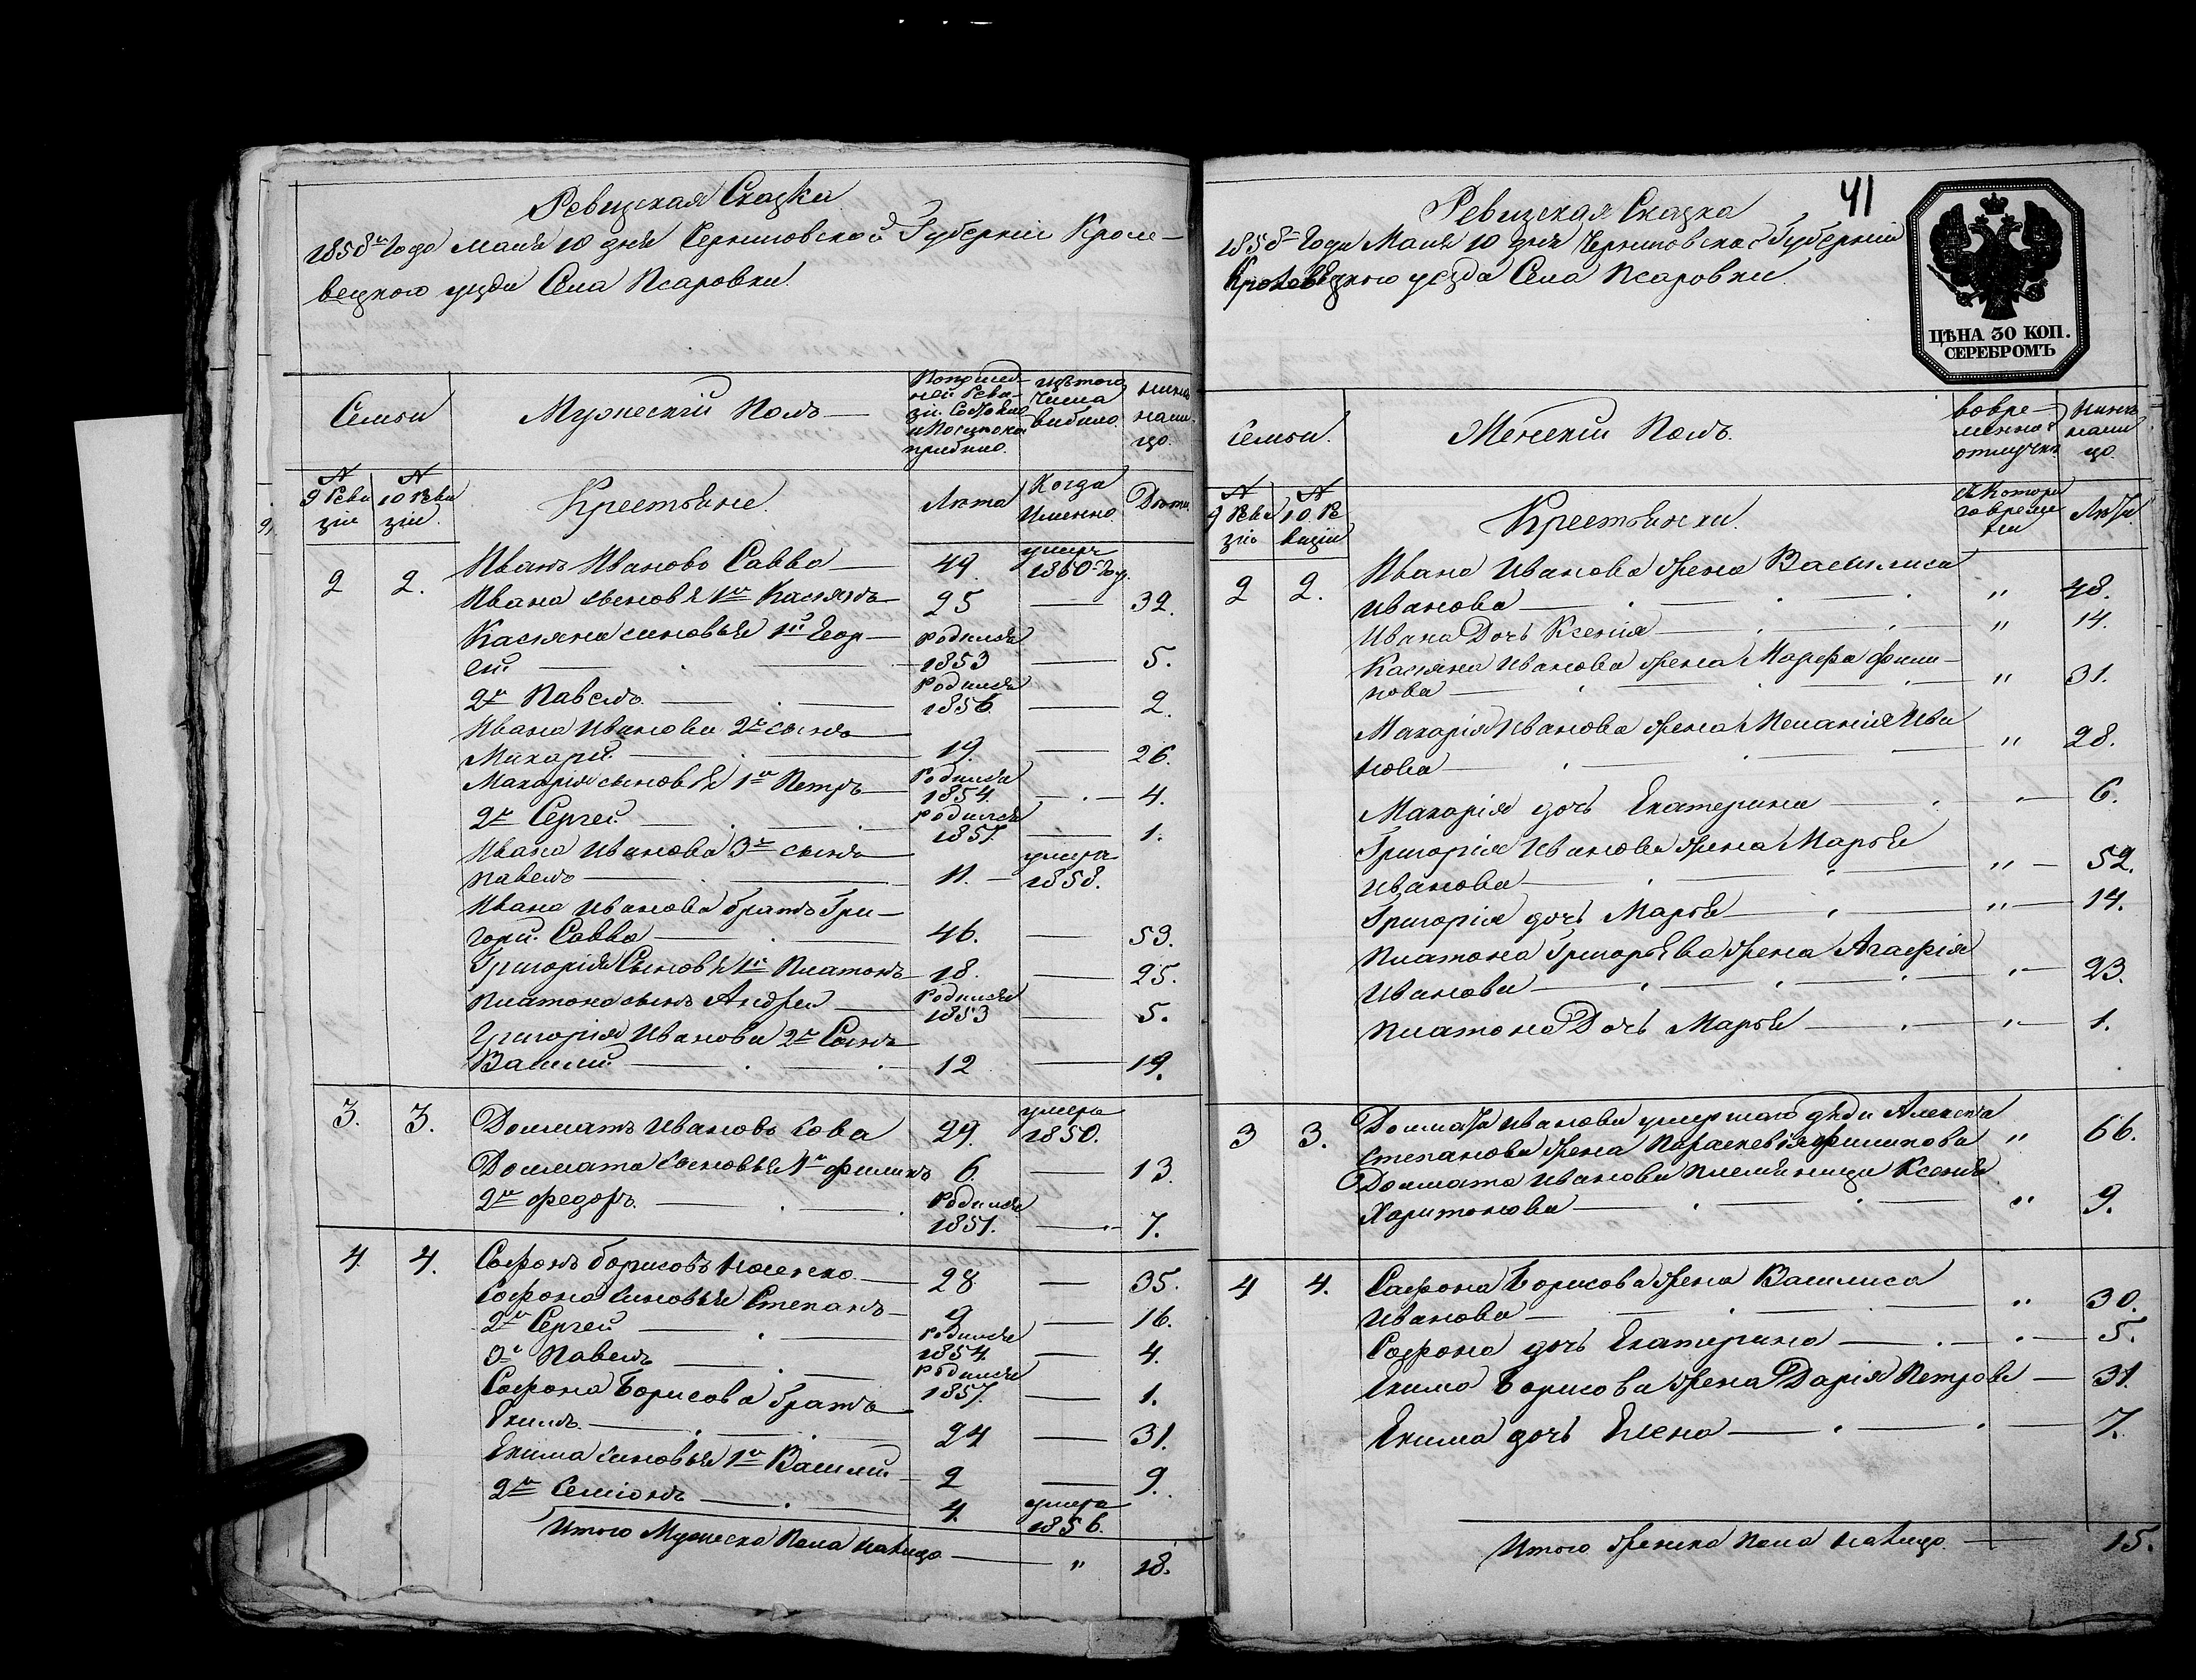 Ревизская Сказка
1858го Года Маия 10 дня Черниговской Губерніи Кроле-
вецкого уезда Села Псаровки.
Семьи
Мужескій Полъ
По последней Ревизіи Состояло и После того прибыло.
Изъ того числа выбыло.
Ныне на лицо.
№ 9 Ревизіи
№ 10 Ревизіи.
Крестьяне.
Лета
Когда Именно.
Лета.
2 2. Иванъ Ивановъ Савво 49. умеръ 1850 Году.
Ивана сыновья 1й Касиянъ 25 — 32.
Касияна сыновья 1й Геор- родился
гій — 1853 — 5.
2й Павелъ родился 1856. — 2.
Ивана Иванова 2й сынъ
Макарій. 19. — 26.
Макарія сыновья 1й Петръ родился 1854. — 4.
2й Сергей родился 1857. — 1.
Ивана Иванова 3й сынъ
Павелъ 11. — умеръ 1858.
Ивана Иванова братъ Гри-
горій Савво 46. — 53.
Григорія Сыновья 1й Платонъ 18. — 25.
Платона сынъ Андрей родился 1853 — 5.
Григорія Иванова 2й Сынъ
Василій. 12 — 19.
3. 3. Долматъ Ивановъ Сова 29. умеръ 1850.
Долмата Сыновья 1й Филипъ 6. — 13.
2й Федоръ. родился 1851. — 7.
4. 4. Софонъ Борисовъ 28 — 35.
Софона Сыновья Степанъ 9 — 16.
2й Сергей родился 1854. — 4.
3й Павелъ родился 1857. — 1.
Софона Борисова братъ
Екимъ. 24 — 31.
Екима сыновья 1й Василій 2 — 9.
2й Семіонъ 4. умеръ 1856.
Итого Мужеска Пола налицо — " 18.
41
Ревизская Сказка
1858го Года Маия 10 дня Черниговской Губерніи
Кролевецкого уезда Села Псаровки.
ЦѢНА 30 КОП.
СЕРЕБРОМЪ
Семьи.
Женскій Полъ.
Во временной отлучке
Ныне на лицо.
№ 9 Ревизіи
№ 10 Ревизіи
Крестьянки.
съ Которого времени
Лета.
2 2. Ивана Иванова жена Василиса
Иванова " 48.
Ивана Дочь Ксенія " 14.
Касияна Иванова жена Марфа Фили-
пова " 31.
Макарія Иванова жена Меланія Ива
нова " 28.
Макарія дочь Екатерина " 6.
Григорія Иванова жена Марья
Иванова " 52.
Григорія дочь Марья " 14.
Платона Григорьева жена Агафія
Иванова " 23.
Платона Дочь Марья " 1.
3 3. Долмата Иванова умершаго дяди Алексея
Степанова жена Параскевія Филипова " 66.
Долмата Иванова племяница Ксенія
Харитонова " 9.
4 4. Сафона Борисова жена Василиса
Иванова " 30.
Софона дочь Екатерина " 5.
Екима Борисова жена Дарія Петрова — 31.
Екима дочь Елена — 7.
Итого женска пола налицо. — 15.